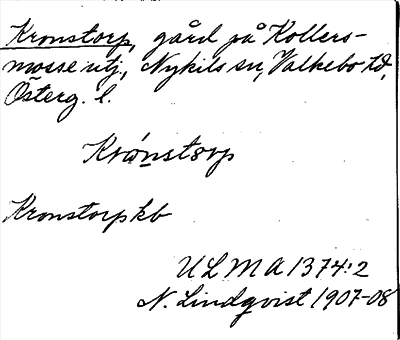 Kronstorp, gård på Kollers-
mosse utj., Nykils sn, Valkebo hd,
Österg. l.
Krónstorp
Kronstorp kb
ULMA 1374:2
N. Lindqvist 1907-08